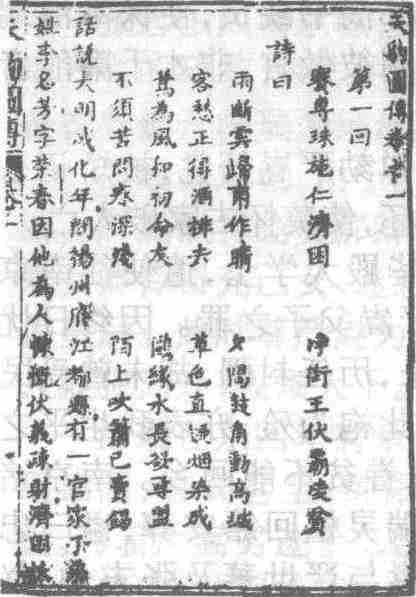 天豹圖傳卷之一
第一回
賽專珠施仁濟困 淨街王伏霸凌貧
詩曰
雨斷雲歸甫作晴 夕陽鼓角動高城
客愁正得酒排去 草色直疑烟染成
鶯為風和初命友 鷗緣水長欲尋盟
不須苦問春深淺 陌上吹簫已賣餳
話說大明成化年間揚州府江都縣有一官家子弟
姓李名芳字荣春因他為人慷慨伏義疎財濟困扶
天豹圖傳 卷之一